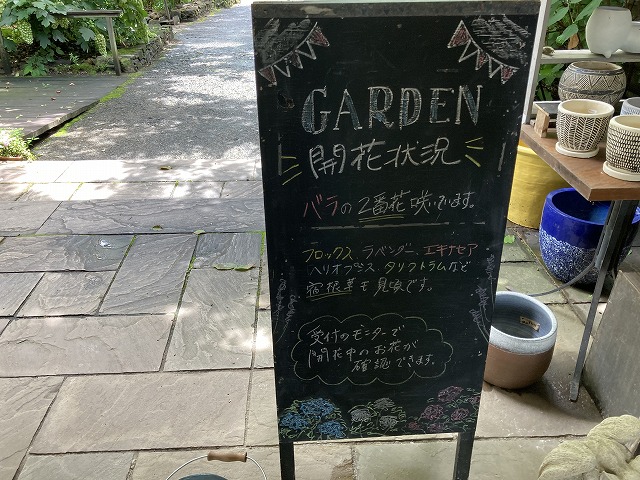 GARDEN
開花状況
バラの2番花咲いています。
フロックス、ラベンダー、エキナセア
ヘリオプシス、タリクトラムなど
宿根草も見頃です。
受付のモニターで
開花中のお花が
確認できます。